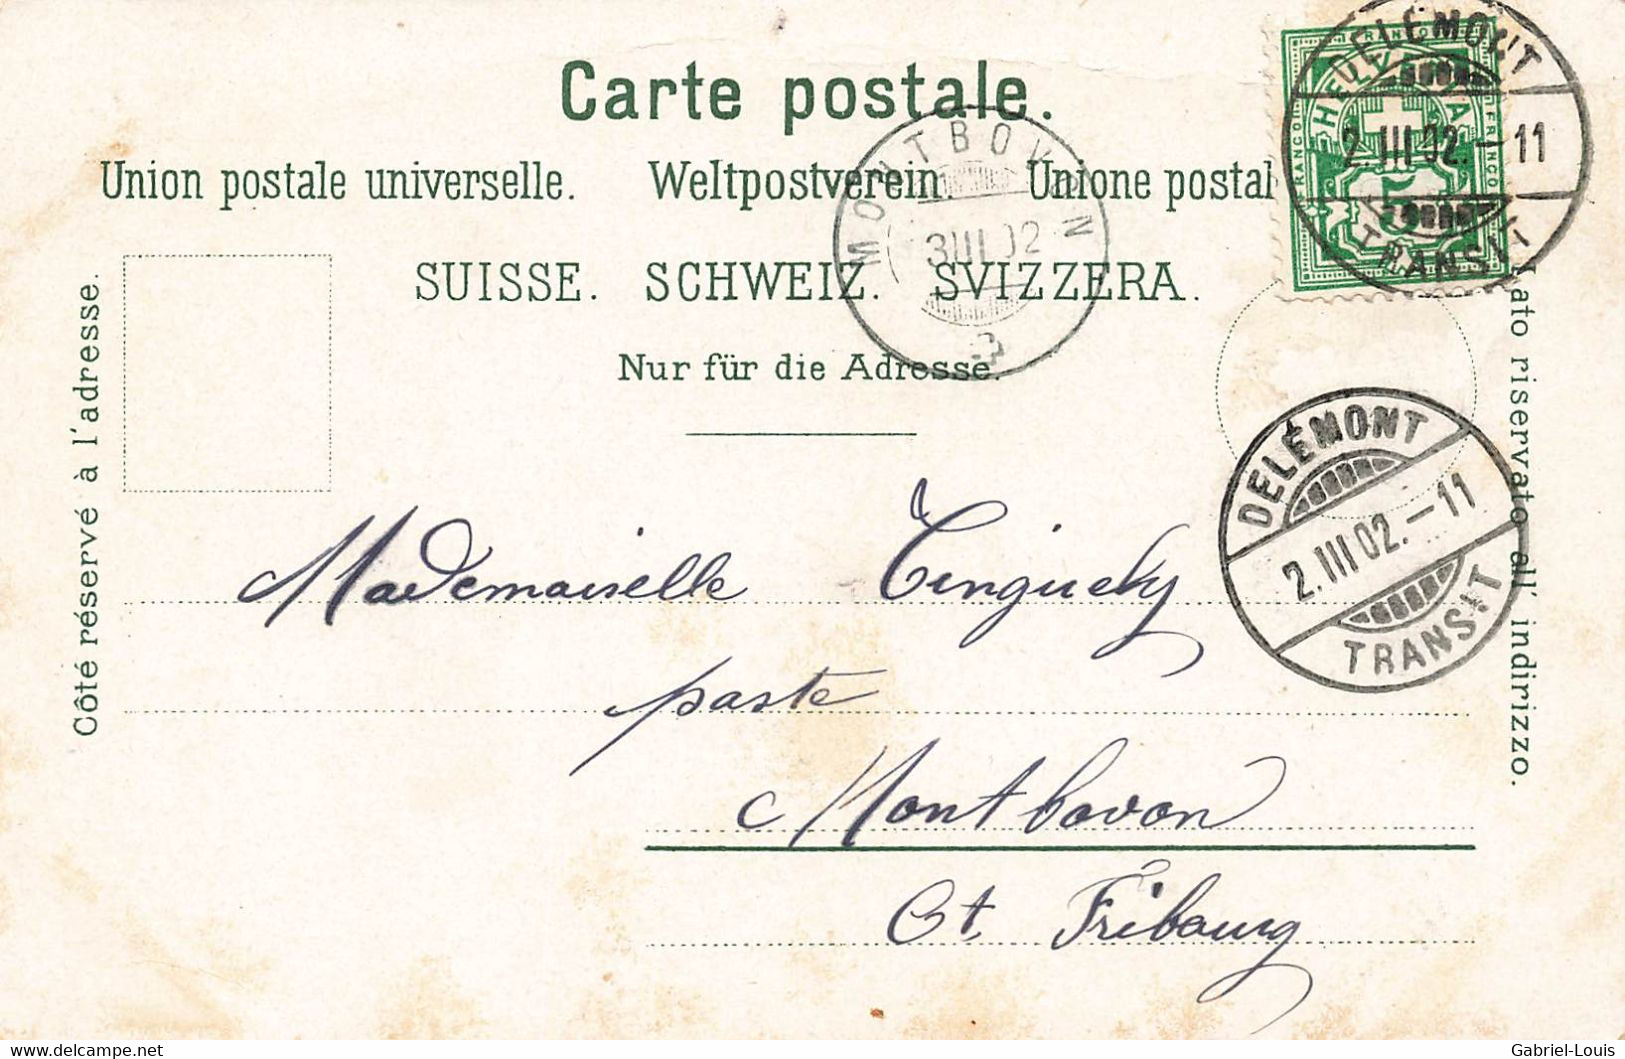 Carte postale.
Union postale universelle. Weltpostverein. Unione postal
SUISSE. SCHWEIZ. SVIZZERA.
Nur für die Adresse.
Côté réservé à l'adresse.
lato riservato all' indirizzo.
HELVETIA
FRANCO
5
DELÉMONT
2.III.02.-11
TRANSIT
MONTBOVON
3.III.02
DELÉMONT
2.III.02.-11
TRANSIT
Mademoiselle Tinguely
poste
Montbovon
Ct. Fribourg
http://www.delcampe.net
Gabriel-Louis